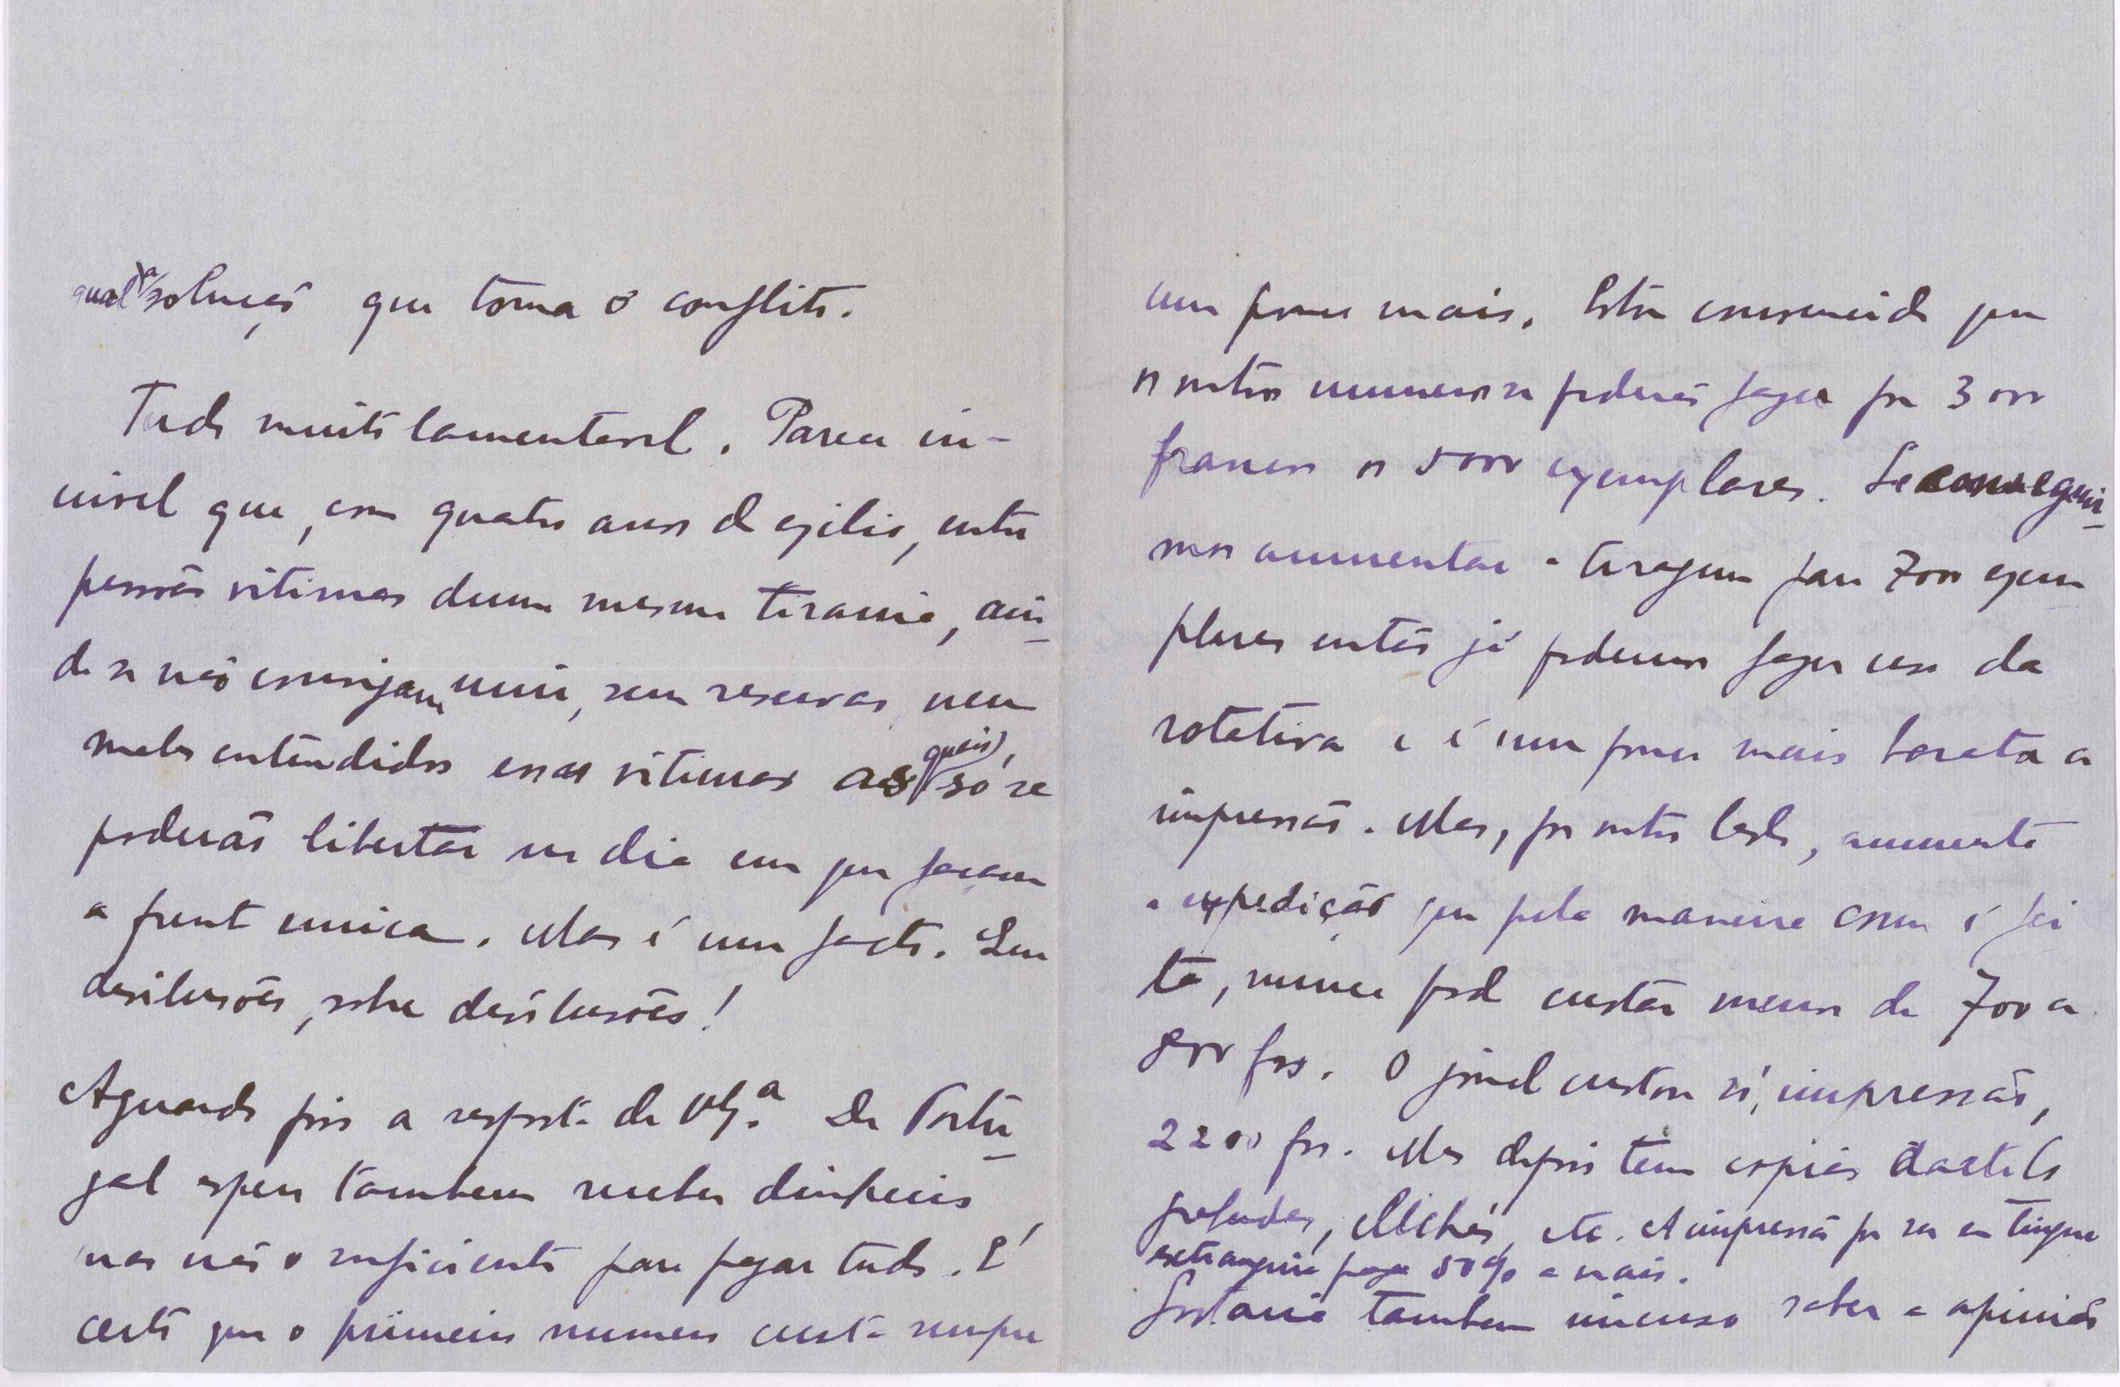 qual a solução que toma o conflito.
Tudo muito lamentavel. Parece in-
crivel que, com quatro anos de exilio, entre
pessoas vitimas duma mesma tirania, ain-
da se não corrijam, sem reservas nem
mal entendidos essas vitimas as quais só se
poderão libertar no dia em que façam
a frente unica. Mas é um facto. Sem
desilusões, sobre desilusões!
Aguardo pois a resposta de V. Ex.ª De Portu-
gal espero tambem receber dinheiro
mas não o suficiente para pagar tudo. É
certo que o primeiro numero custa sempre
um pouco mais. Estou convencido que
os outros numeros se poderão fazer por 3000
francos os 5000 exemplares. Se conseguir-
mos aumentar a tiragem para 7000 exem
plares então já podemos fazer uso da
rotativa e é um pouco mais barata a
impressão. Mas, por outro lado, aumenta
a expedição que pela maneira como é fei
ta, nunca pode custar menos de 700 a
800 frs. O jornal custou só, impressão,
2200 frs. Mas depois tem copias dactilo
grafadas, clichés, etc. A impressão por ser em lingua
extrangeira paga 50% a mais.
Gostaria tambem imenso saber a opinião